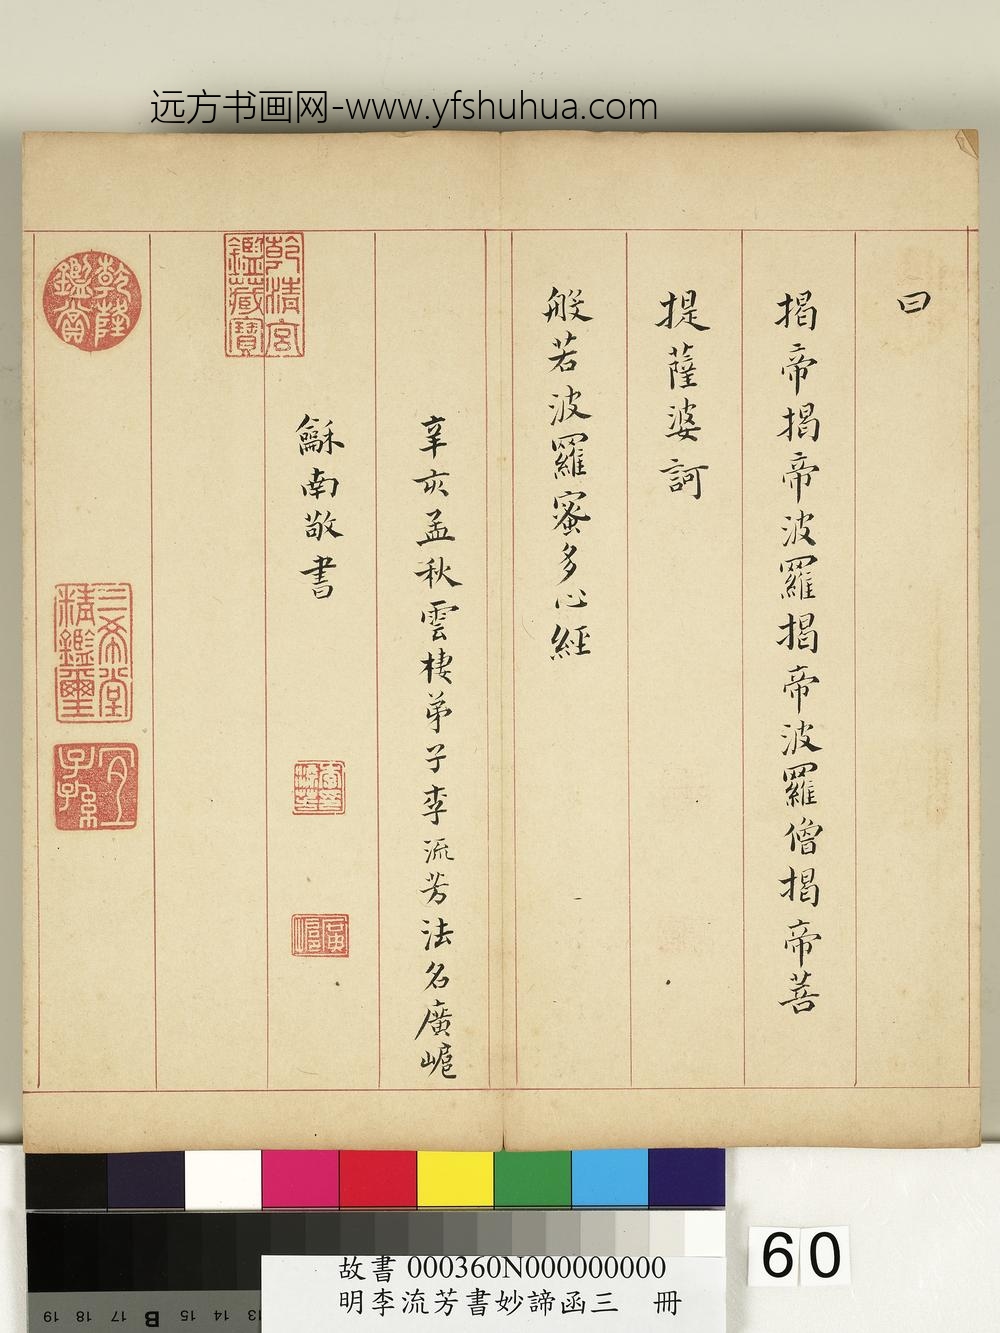 远方书画网-www.yfshuhua.com
曰
揭帝揭帝波羅揭帝波羅僧揭帝菩
提薩婆訶
般若波羅蜜多心經
辛亥孟秋雲棲弟子李流芳法名廣岲
龢南敬書
李印流芳
乾清宮鑑藏寶
乾隆鑑賞
三希堂精鑑璽
宜子孫
60
故書 000360N000000000
明李流芳書妙諦函三 冊
19 18 17 B 15 14 13